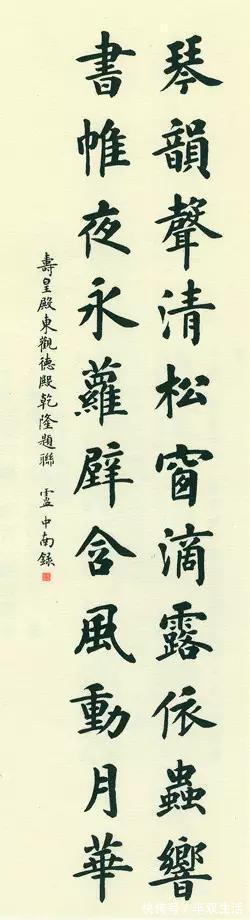 琴韻聲清松窗滴露依蟲響
書帷夜永蘿壁含風動月華
壽皇殿東觀德殿乾隆題聯 盧中南錄
快传号/半双生活